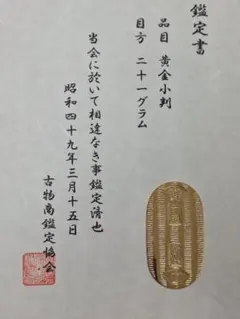 鑑定書
品目 黄金小判
目方 二十一グラム
当会に於いて相違なき事鑑定済也
昭和四十九年三月十五日
古物商鑑定協会